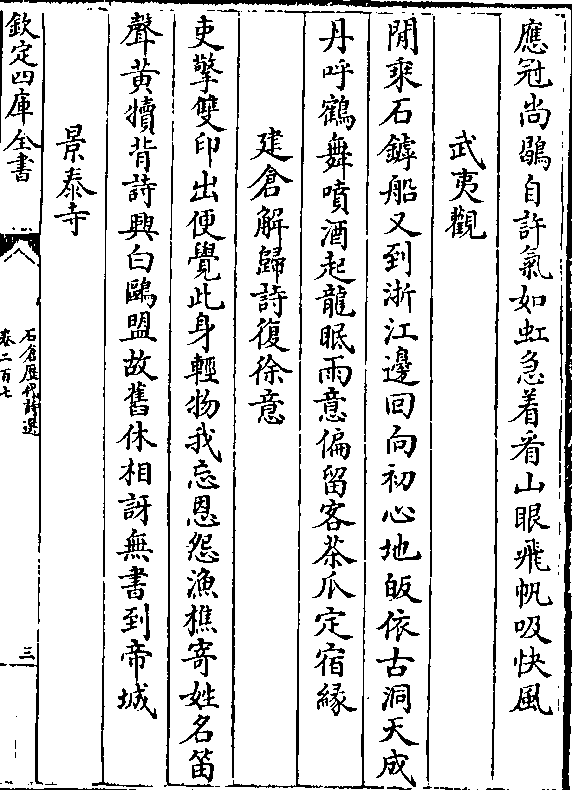 應冠尚鶡自許氣如虹急着看山眼飛帆吸快風
武夷觀
閒乘石鏬船又到浙江邊回向初心地皈依古洞天成
丹呼鶴舞噴酒起龍眠雨意偏留客茶爪定宿緣
建倉解歸詩復徐意
吏擎雙印出便覺此身輕物我忘恩怨漁樵寄姓名笛
聲黃犢背詩興白鷗盟故舊休相訝無書到帝城
景泰寺
欽定四庫全書
石倉歷代詩選
卷二百七
三